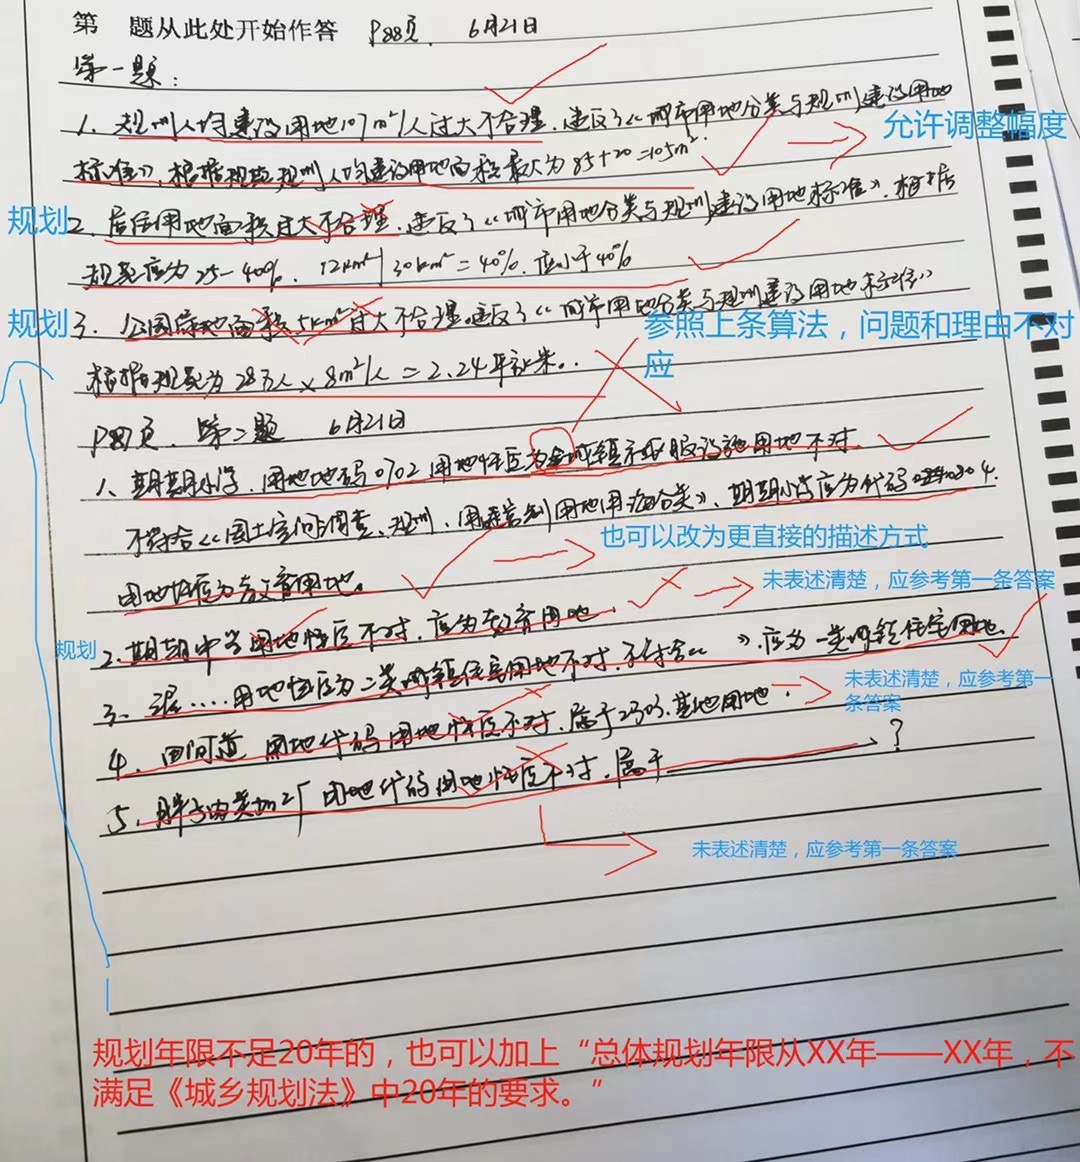 第 题从此处开始作答 P88页. 6月21日
第一题:
1. 规划人均建设用地107m²/人过大不合理,违反了《城市用地分类与规划建设用地
允许调整幅度
标准》,根据现规划人均建设用地面积最大为85+20=105m².
规划
2. 居住用地面积过大不合理,违反了《城市用地分类与规划建设用地标准》,根据
规范应为25-40%. 12km²/30km²=40%.应小于40%
规划
3. 公园绿地面积5km²过大不合理.违反了《城市用地分类与规划建设用地标准》
参照上条算法,问题和理由不对应
根据规范为28万人×8m²/人=2.24平方千米..
P87页. 第二题 6月21日
1、期期小学.用地地码0702用地性质为城镇社区服设施用地不对.
不符合《国土空间调查、规划、用途管制用地用海分类》,期期小学应为代码0804.
也可以改为更直接的描述方式
用地性质为教育用地。
未表述清楚,应参考第一条答案
规划
2、期期中学用地性质不对,应为教育用地.
3、用地性质为二类城镇住宅用地不对.不符合《 》.应为一类城镇住宅用地.
未表述清楚,应参考第一条答案
4、田间道 用地代码用地性质不对.属于2303.其他用地.
5、胖子肉类加工厂 用地代码用地性质不对.属于 ?
未表述清楚,应参考第一条答案
规划年限不足20年的,也可以加上“总体规划年限从XX年——XX年,不
满足《城乡规划法》中20年的要求。”